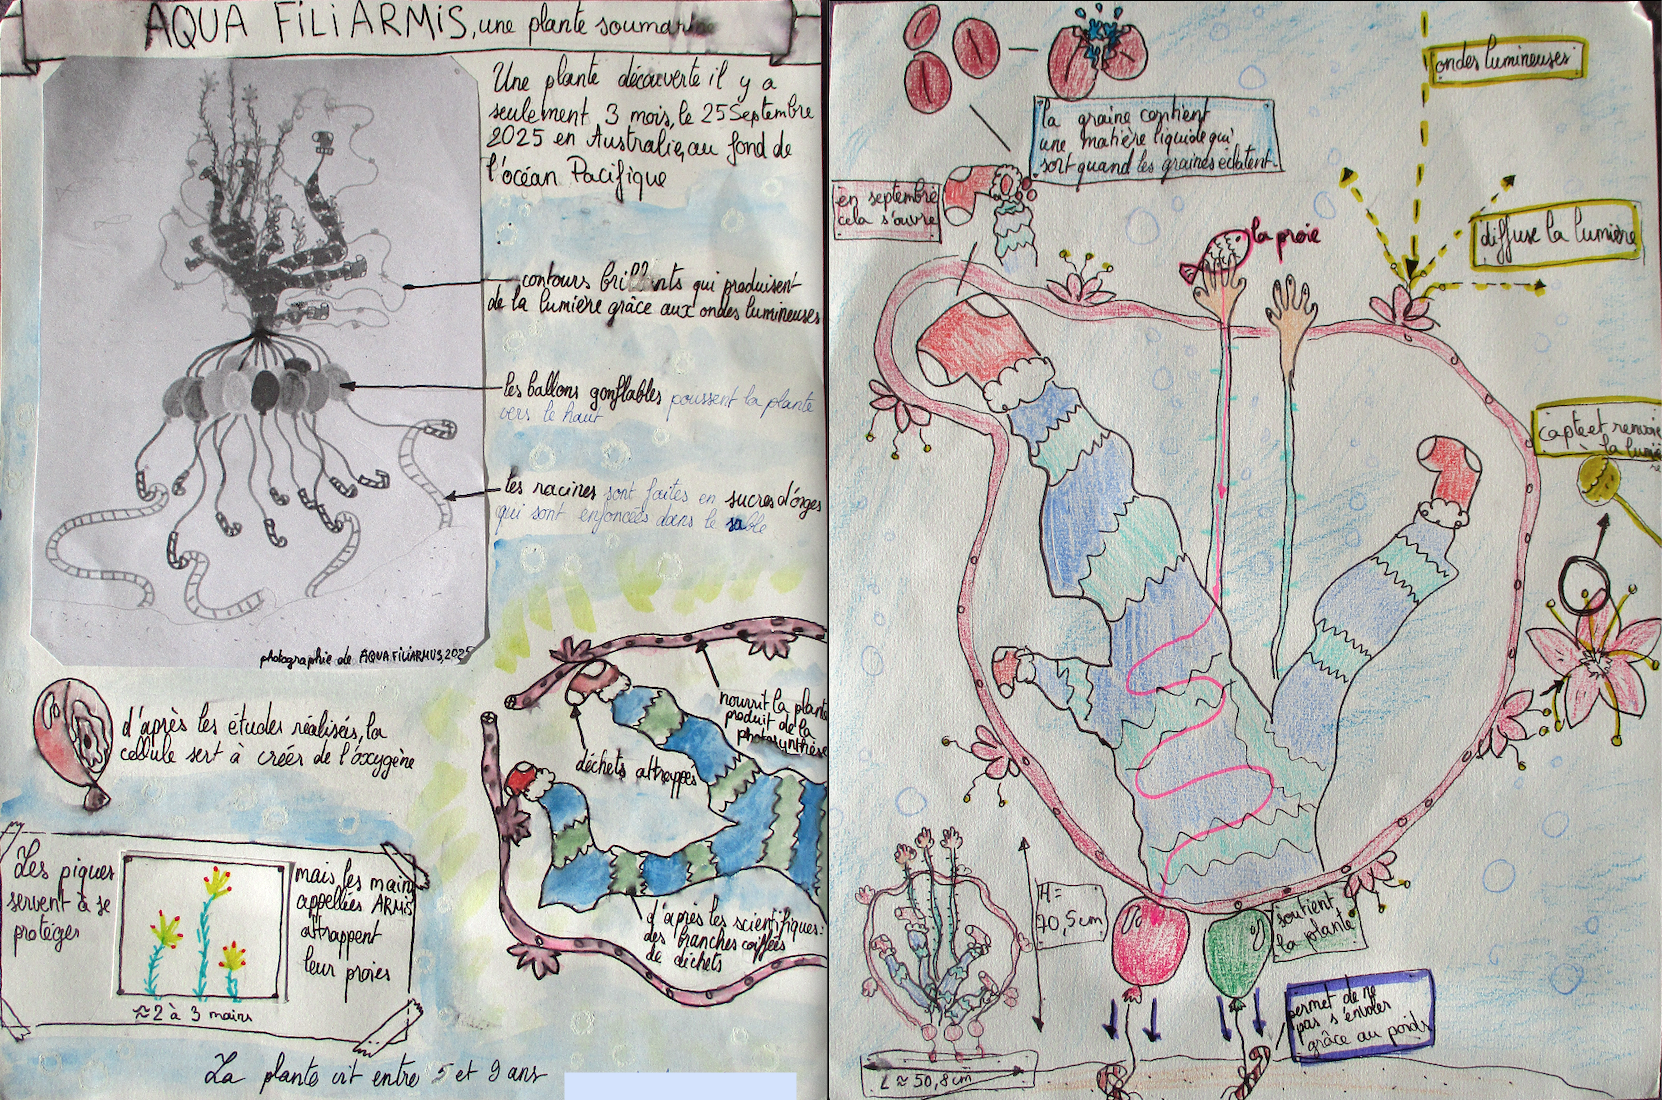 AQUA FiLiARMiS, une plante soumarine
Une plante découverte il y a
seulement 3 mois, le 25 Septembre
2025 en Australie, au fond de
l'océan Pacifique
contours brillants qui produisent
de la lumière grâce aux ondes lumineuses
les ballons gonflables poussent la plante
vers le haut
les racines sont faites en sucres d'orges
qui sont enfoncées dans le sable
photographie de AQUA FILIARMUS, 2025
d'après les études réalisés, la
cellule sert à créér de l'oxygène
nourrit la plante
produit de la
photosynthèse
déchets attrappés
d'après les scientifiques:
des branches coiffées
de déchets
Les piques
servent à se
protéger
mais les mains
appellées ARMiS
attrappent
leur proies
≈ 2 à 3 mains
La plante vit entre 5 et 9 ans
la graine contient
une matière liquide qui
sort quand les graines éclatent.
en septembre
cela s'ouvre
la proie
ondes lumineuses
diffuse la lumière
capte et renvoie
la lumière
H =
70,5 cm
L ≈ 50,8 cm
soutient
la plante
permet de ne
pas s'envoler
grâce au poids